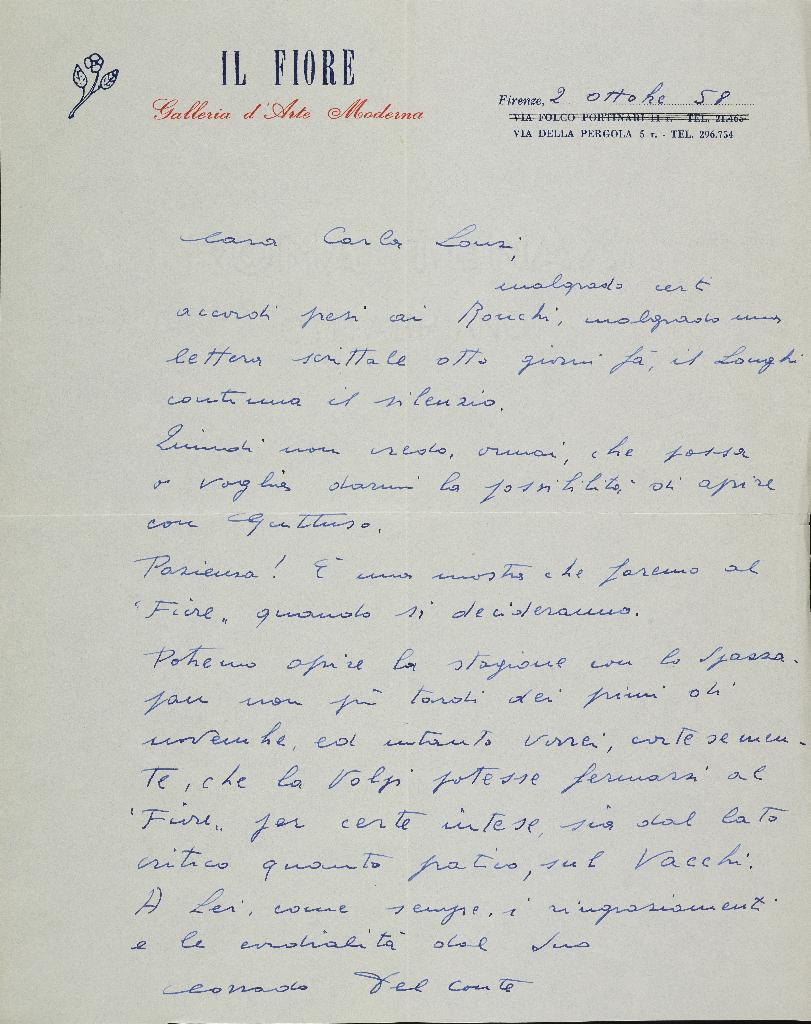 IL FIORE
Galleria d'Arte Moderna
Firenze, 2 ottobre 58
VIA FOLCO PORTINARI 11 r. - TEL. 21.465
VIA DELLA PERGOLA 5 r. - TEL. 296.754
Cara Carla Lonzi,
malgrado certi
accordi presi ai Ronchi, malgrado una
lettera scrittale otto giorni fà, il Longhi
continua il silenzio.
Quindi non credo, ormai, che possa
o voglia darmi la possibilità di aprire
con Guttuso.
Pazienza! È una mostra che faremo al
"Fiore" quando si decideranno.
Potremo aprire la stagione con lo Spazza-
pan non più tardi dei primi di
novembre, ed intanto vorrei, cortesemen-
te, che la Volpi potesse fermarsi al
"Fiore" per certe intese, sia dal lato
critico quanto pratico, sul Vacchi.
A Lei, come sempre, i ringraziamenti
e le cordialità dal Suo
Corrado Del Conte